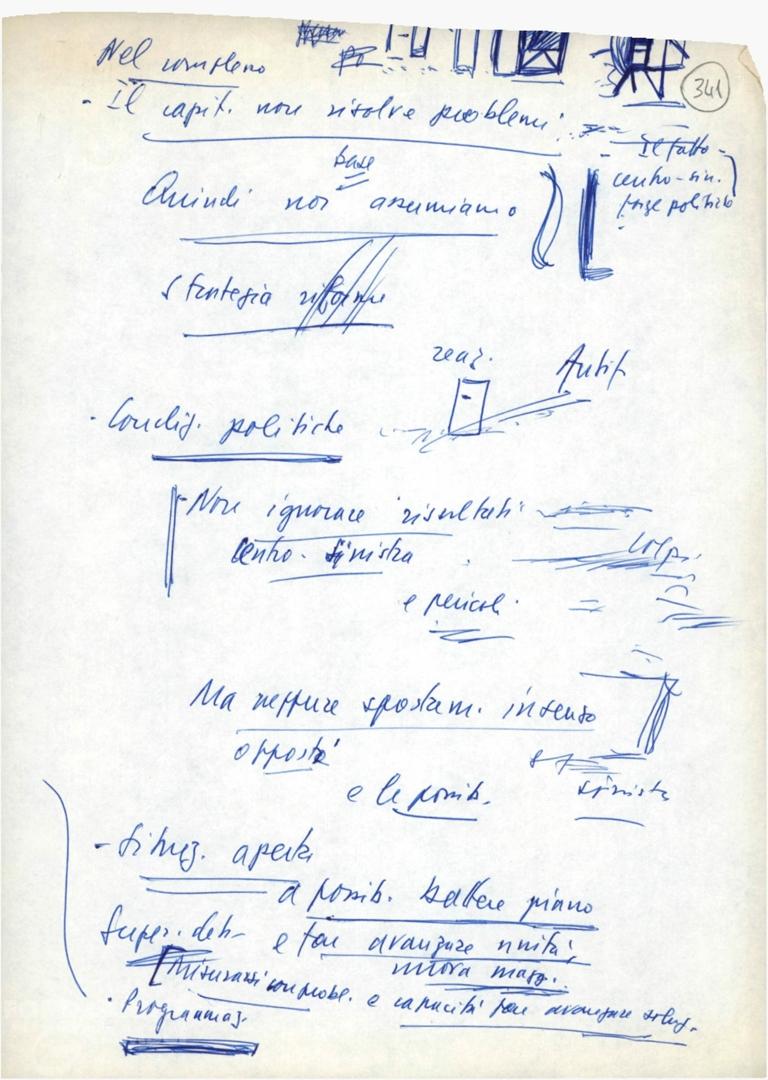 341
Nel complesso
- Il capit. non risolve problemi:
Il fatto
centro-sin.
forze politiche
base
Quindi noi assumiamo
strategia riforme
reaz.
Antif
- Condiz. politiche
- Non ignorare risultati
centro-sinistra
colpi
e pericoli
Ma neppure spostam. in senso
opposto
e le possib.
sinistra
- Situaz. aperta
a possib. battere piano
e far avanzare unità,
nuova magg.
[Misurarsi con probl. e capacità fare avanzare soluz.
- Programmaz.